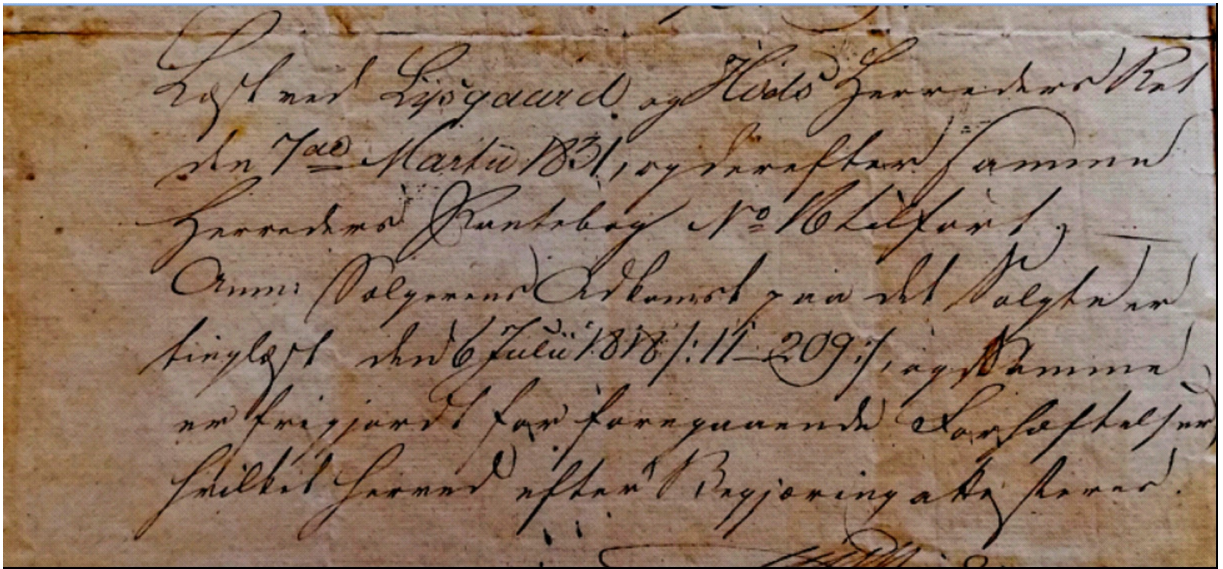 Læst ved Lysgaard og Hids Herreders Ret
den 7de Martii 1831, og derefter samme
Herreders Pantebog No 16 tilført,
Anm: Sælgerens Adkomst paa det Solgte er
tinglæst den 6 Julii 1818 /: 11-209 :/, og Samme
er frigjordt for foregaaende Forhæftelser
hvilket herved efter Begjæring attesteres.